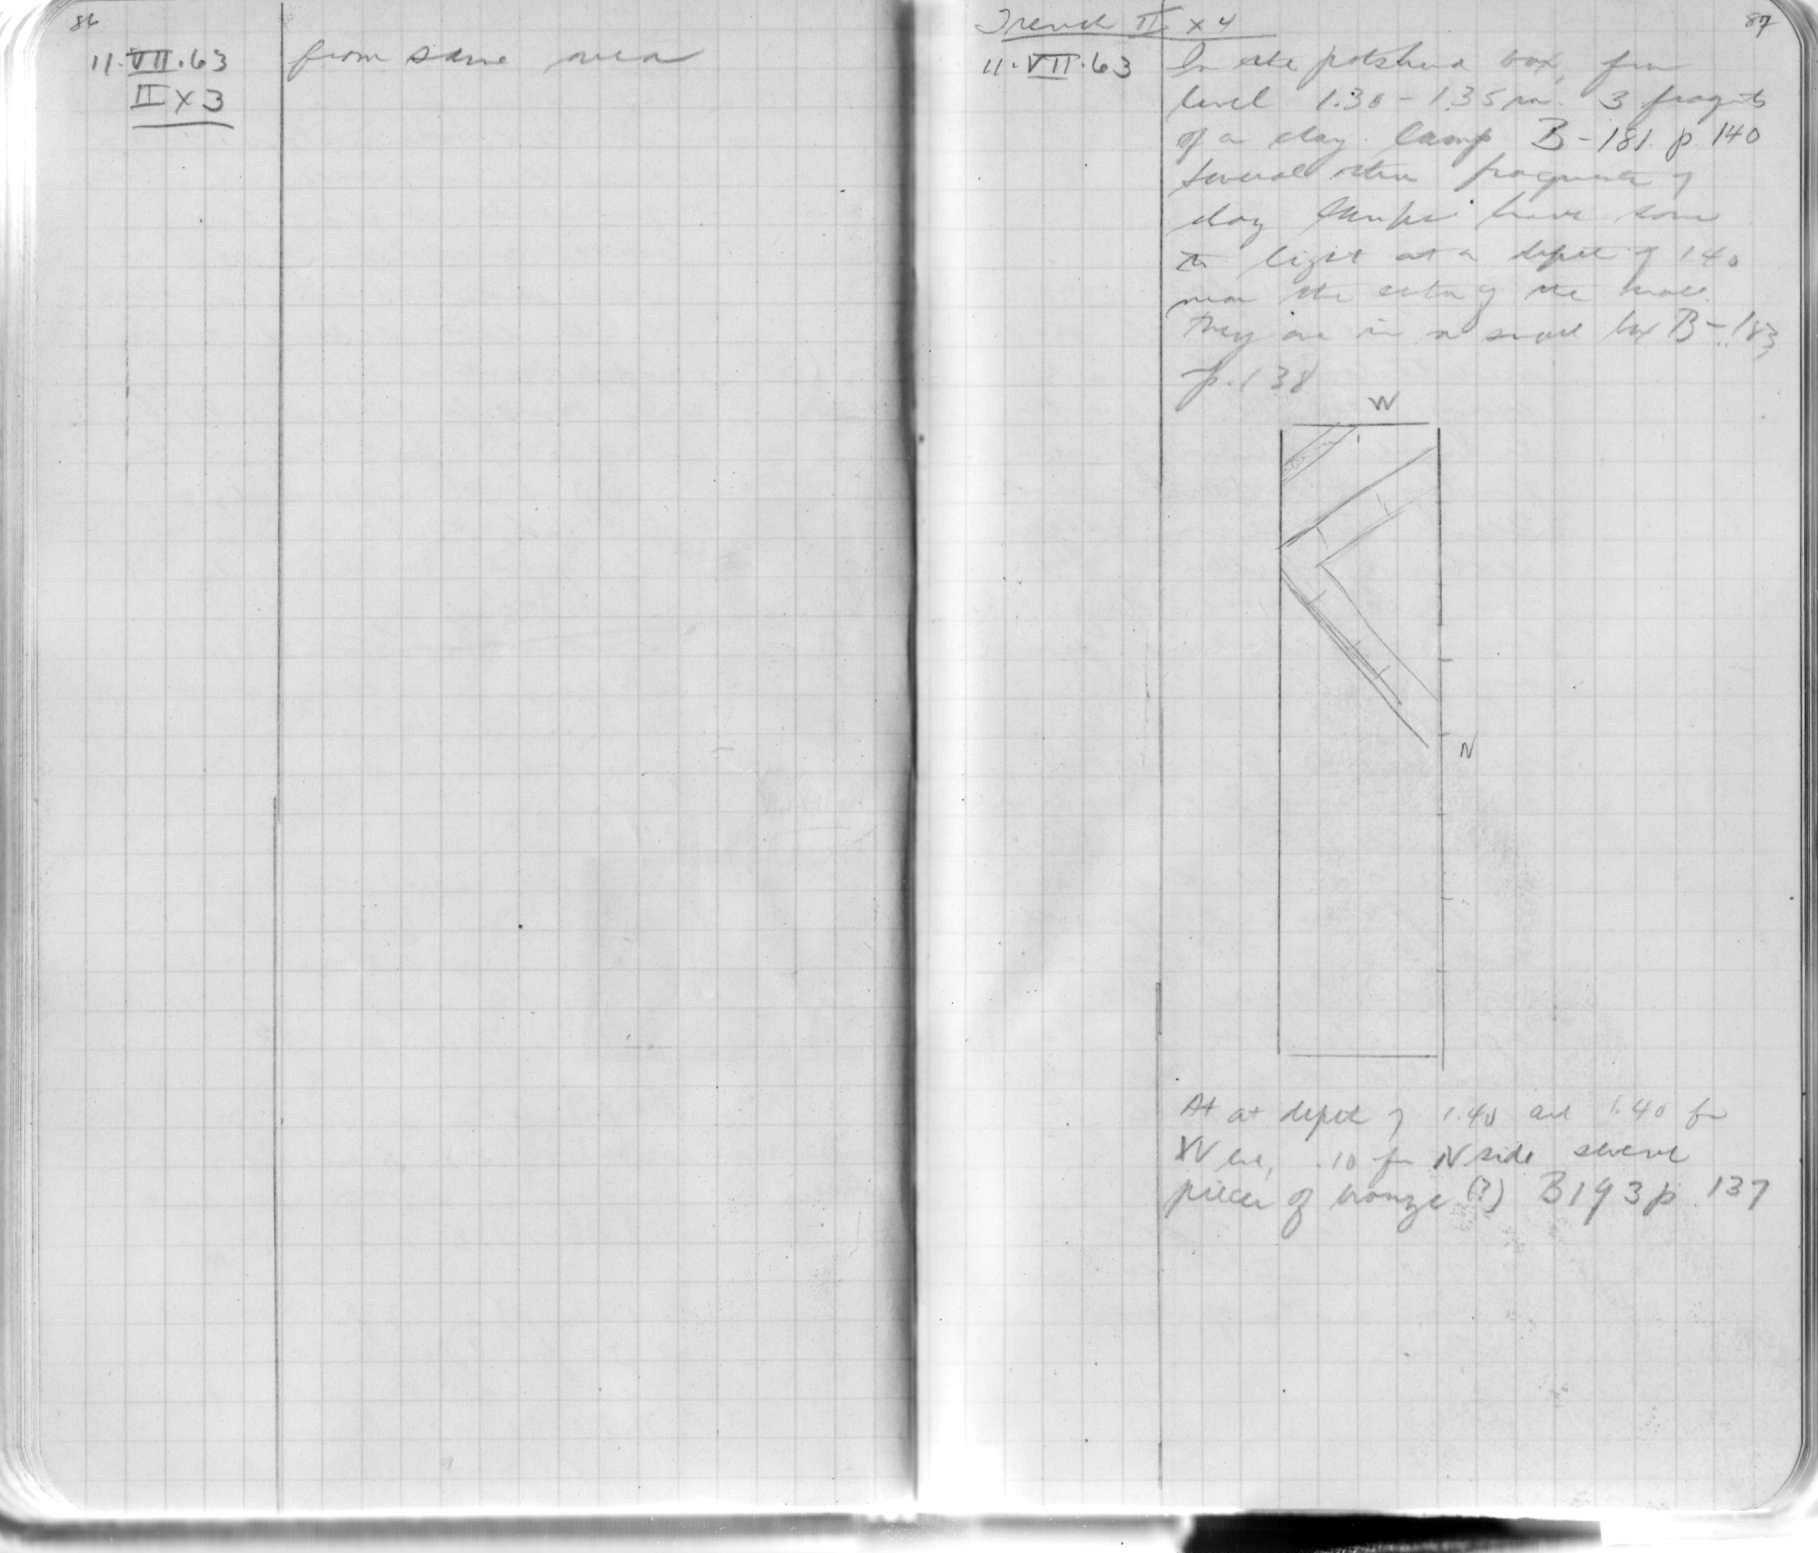 86
11.VII.63
II x 3
from same area
Trench II x 4
87
11.VII.63
In the potsherd box, from
level 1.30 - 1.35 m. 3 fragmts
of a clay lamp B-181 p 140
Several other fragments of
clay lamps have come
to light at a depth of 140
near the of the
They are in a small box B-183
p. 138
W
N
At at depth of 1.40 and 1.40 fr
W end, .10 fr N side several
pieces of bronze (?) B193 p. 137